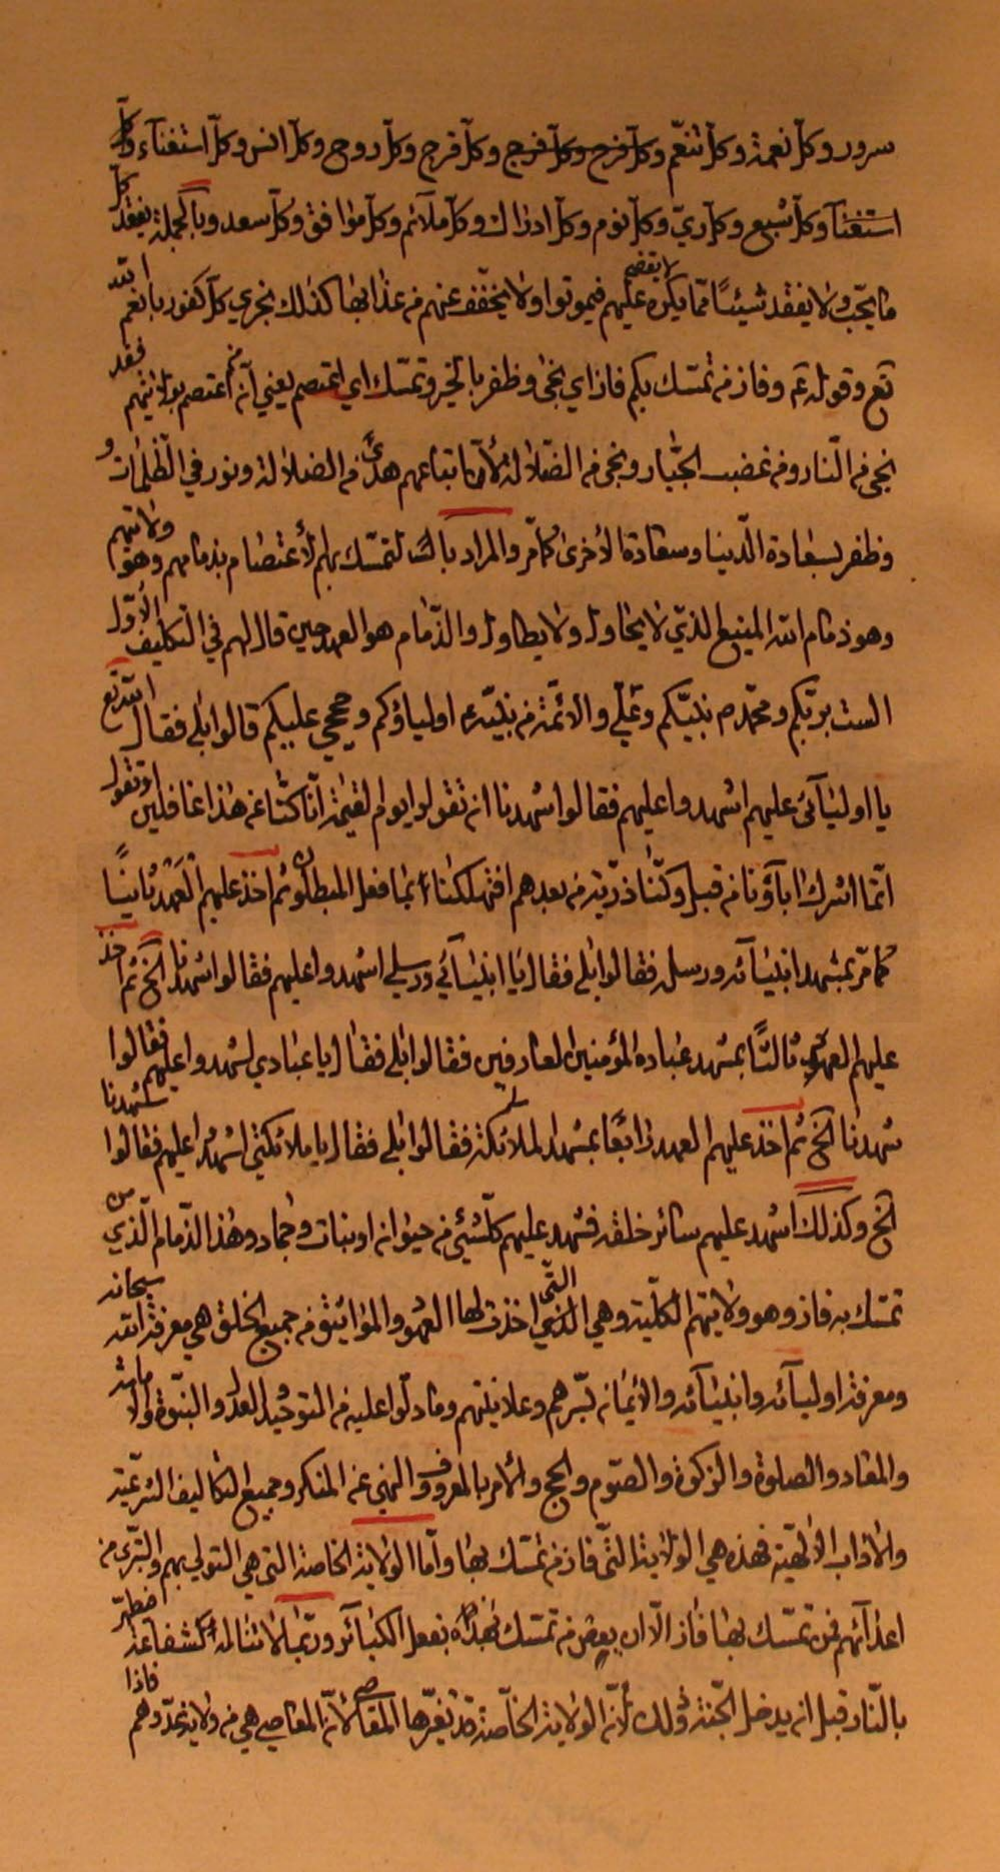 سرور وكلّ نعمة وكلّ تنعّم وكلّ فرح وكلّ فرج وكلّ فرح وكلّ روح وكلّ انس وكلّ استغنآء وكلّ
استغنآء وكلّ شبع وكلّ ريّ وكلّ نوم وكلّ ادراك وكلّ ملآئم وكلّ موافق وكلّ سعد وبالجملة يفقد كلّ
ما يحبّ ولا يفقد شيئًا ممّا يكره لا يقضى عليهم فيموتوا ولا يخفّف عنهم من عذابها كذلك نجزي كلّ كفور بانعم الله
تع وقوله ع وفاز من تمسّك بكم فاز اي نجى وظفر بالخير وتمسّك اي اعتصم يعني انّ من اعتصم بولايتهم فقد
نجى من النّار ومن غضب الجبّار ونجى من الضلالة لانّ اتباعهم هدىً من الضلالة ونور في الظلمات و
وظفر بسعادة الدّنيا وسعادة الاخرى كما مرّ والمراد بالتمسّك بهم الاعتصام بذمامهم وهو ولايتهم
وهو ذمام الله المنيع الذي لا يحاول ولا يطاول والذّمام هو العهد حين قال لهم في التكليف الاوّل
الست بربّكم ومحمّد ص نبيّكم وعليّ والائمّة من بنيه ع اوليآؤكم وحججي عليكم قالوا بلى فقال الله تع
يا اوليآئي عليهم اشهدوا عليهم فقالوا شهدنا ان تقولوا يوم القيمة انّا كنّا عن هذا غافلين او تقولوا
انّما اشرك ابآؤنا من قبل وكنّا ذرّية من بعدهم افتهلكنا بما فعل المبطلون ثم اخذ عليهم العهد ثانيًا
كما مرّ بمشهد انبيآئه ورسله فقالوا بلى فقال يا انبيآئي ورسلي اشهدوا عليهم فقالوا شهدنا الخ ثم اخذ
عليهم العهد ثالثًا بمشهد عباده المؤمنين العارفين فقالوا بلى فقال يا عبادي اشهدوا عليهم فقالوا
شهدنا الخ ثم اخذ عليهم العهد رابعًا بمشهد الملائكة فقالوا بلى فقال يا ملائكتي اشهدوا عليهم فقالوا شهدنا
الخ وكذلك اشهد عليهم سائر خلقه فشهد عليهم كلّ شيء من حيوان او نبات وجماد وهذا الذّمام الّذي من
تمسّك به فاز وهو ولايتهم الكليّة وهي التّي اخذت لها العهود والمواثيق من جميع الخلق هي معرفة الله سبحانه
ومعرفة اوليآئه وانبيآئه والايمان بسّرهم وعلانيتهم وما دلّوا عليه من التوحيد والعدل والنبّوة والامامة
والمعاد والصلوة والزكوة والصّوم والحج والامر بالمعروف والنهي عن المنكر وجميع التكاليف الشرعيّة
والاداب الالهيّة فهذه هي الولاية التّي فاز من تمسّك بها وامّا الولاية الخاصة التي هي التولي بهم والتبّري من
اعدآئهم فمن تمسّك بها فاز الّا ان بعض من تمسّك بفعل الكبآئر وربّما لا تناله شفاعة
بالنّار قبل ان يدخل الجّنة وذلك لانّ الولاية الخاصّة قد تغيّرها المعاصي لانّ المعاصي هي من ولاية عدّوهم فاذا